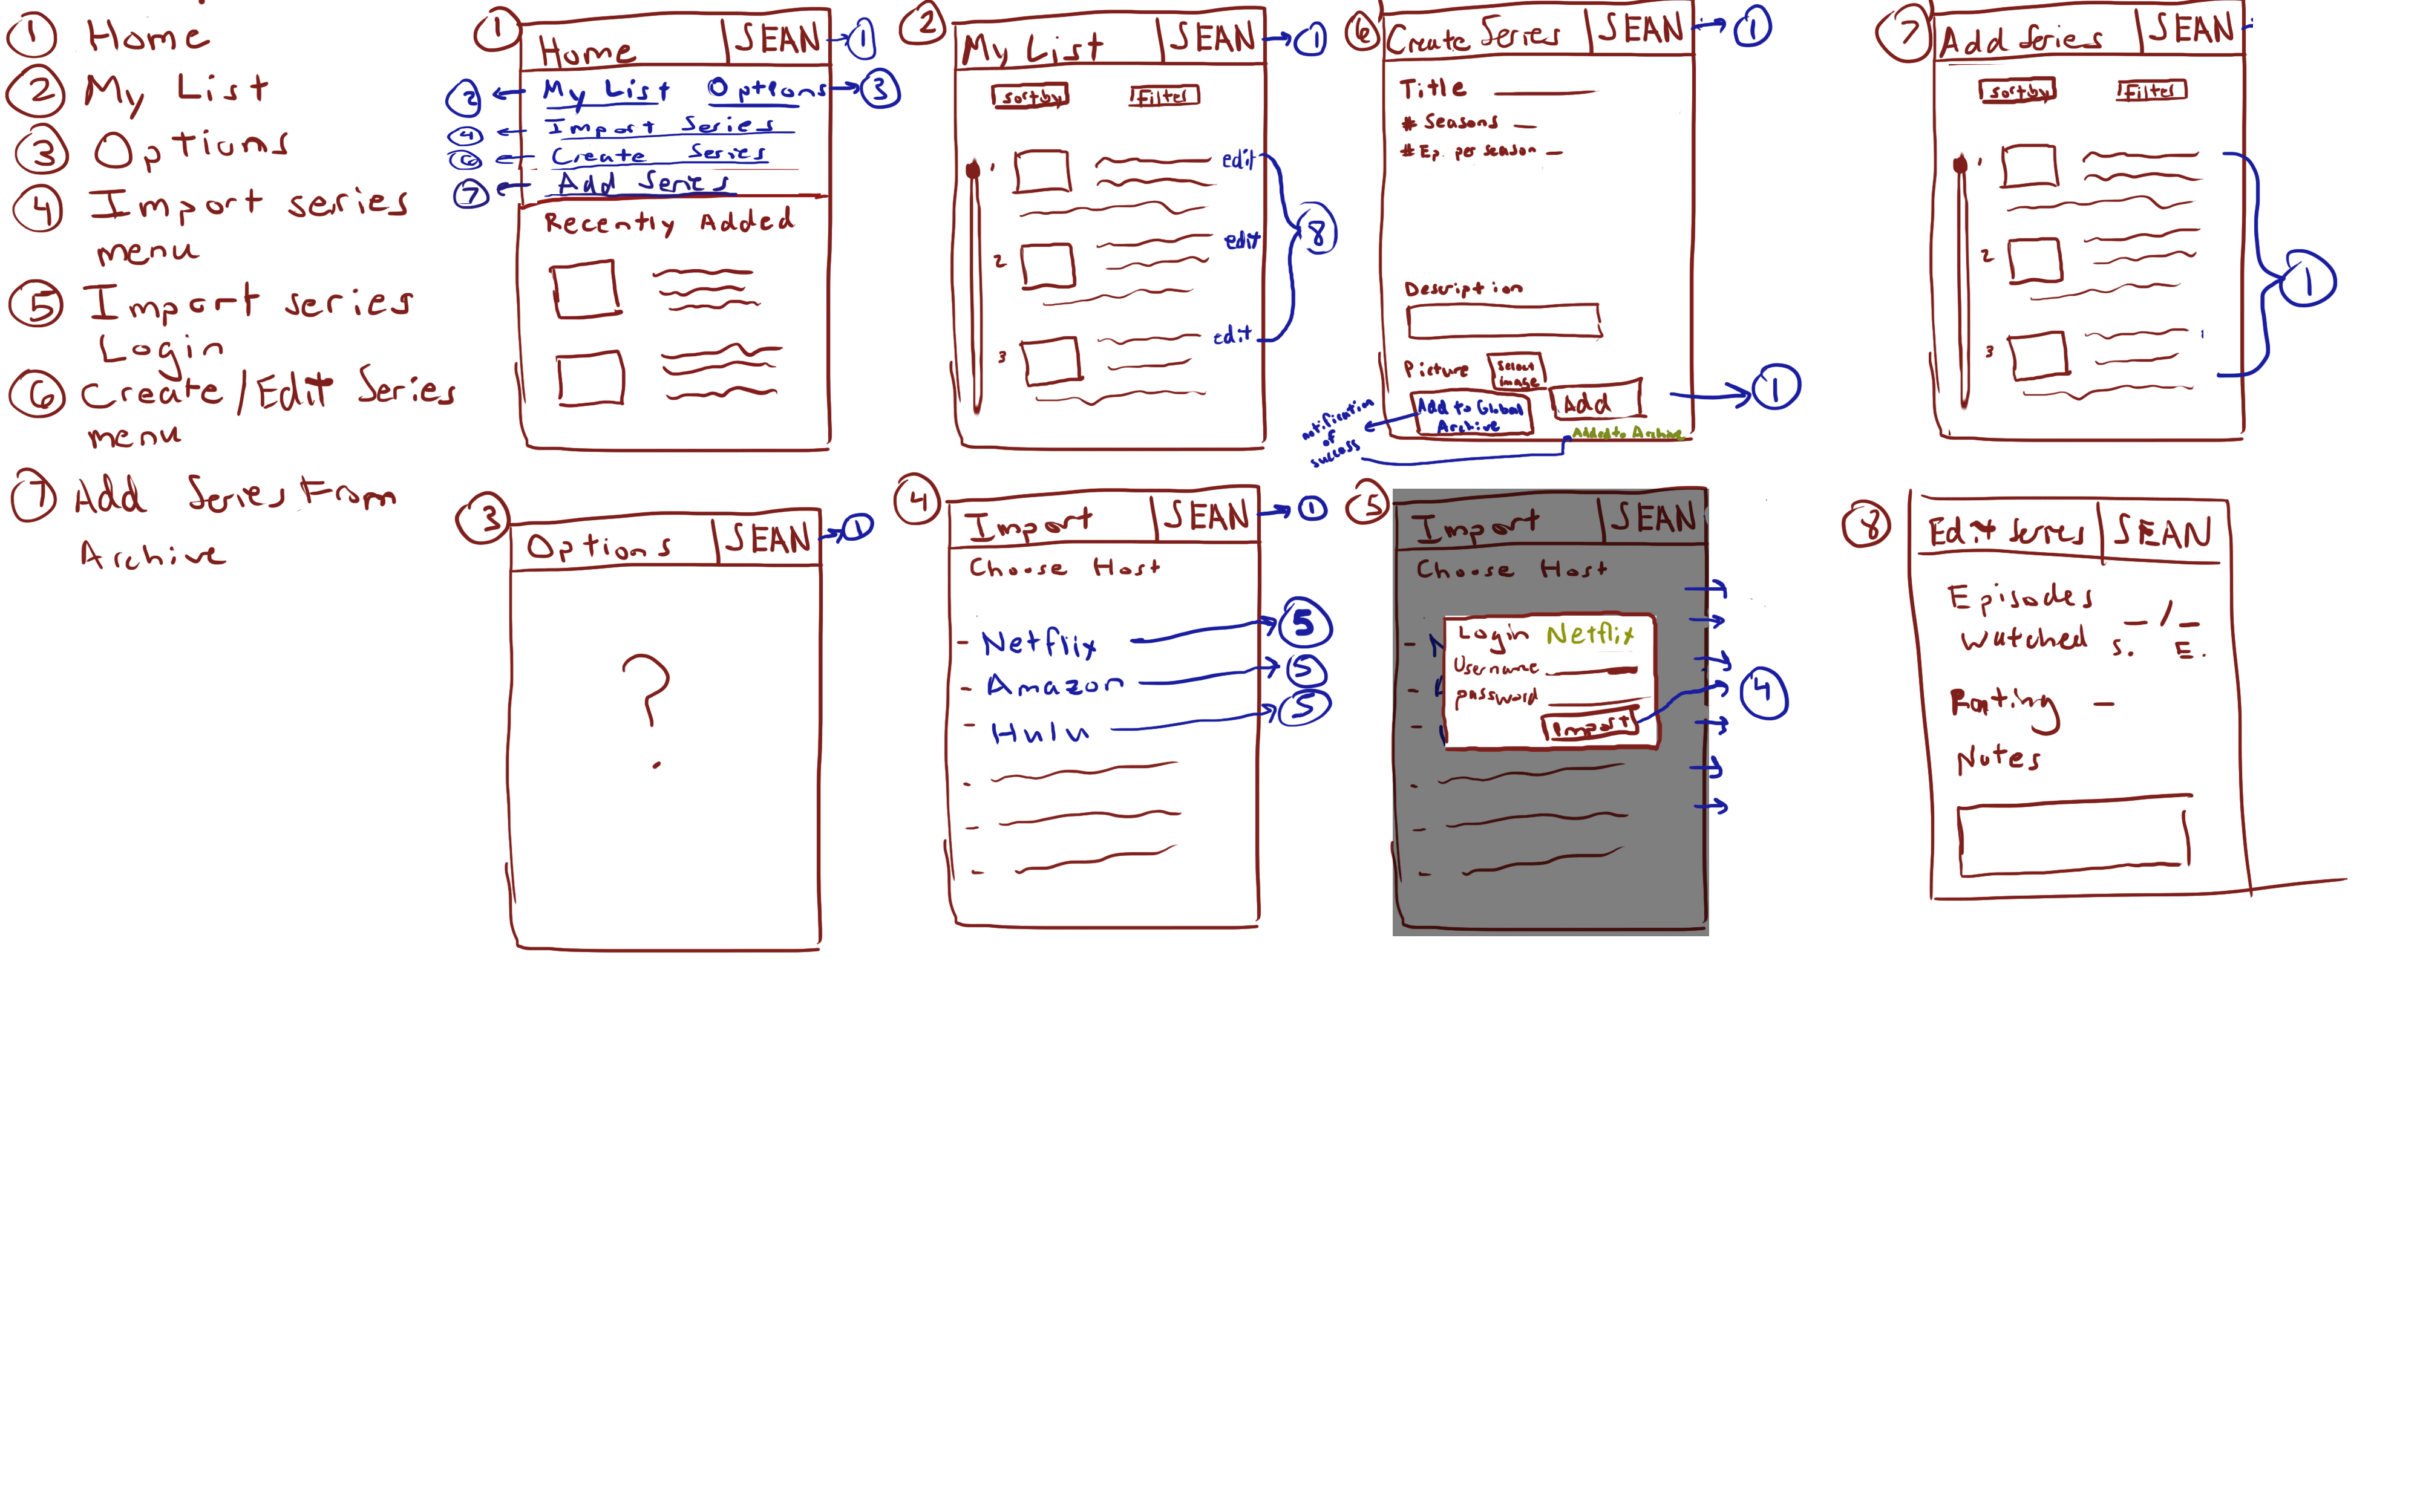 ① Home
② My List
③ Options
④ Import series
menu
⑤ Import series
Login
⑥ Create/Edit Series
menu
⑦ Add Series From
Archive
① Home SEAN → ①
② ← My List Options → ③
④ ← Import Series
⑥ ← Create Series
⑦ ← Add Series
Recently Added
② My List SEAN → ①
Sort by Filter
1 edit
2 edit
3 edit
⑧
⑥ Create Series SEAN → ①
Title
# Seasons
# Ep. per season
Description
Picture Select
image
Add to Global
Archive
Add → ①
notification
of
success
Added to Archive
⑦ Add Series SEAN
Sort by Filter
1
2
3
①
③ Options SEAN → ①
?
④ Import SEAN → ①
Choose Host
- Netflix → ⑤
- Amazon → ⑤
- Hulu → ⑤
⑤ Import SEAN
Choose Host
Login Netflix
Username
password
Import → ④
⑧ Edit Series SEAN
Episodes
watched _ / _
S. E.
Rating _
Notes